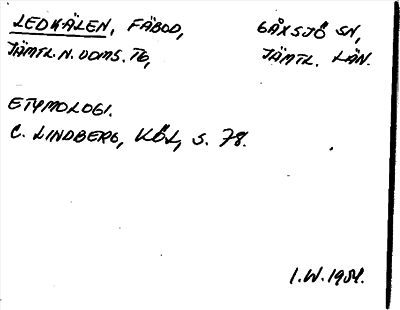 LEDKÄLEN, FÄBOD, GÅXSJÖ SN,
JÄMTL. N. DOMS. TG, JÄMTL. LÄN.
ETYMOLOGI.
C. LINDBERG, KÖL, S. 78.
I.W. 1951.